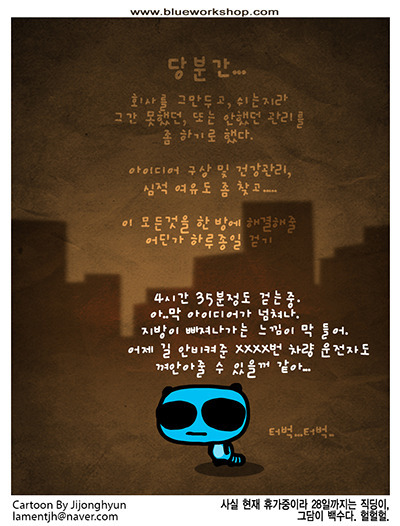 www.blueworkshop.com
당분간...
회사를 그만두고, 쉬는지라
그간 못했던, 또는 안했던 관리를
좀 하기로 했다.
아이디어 구상 및 건강관리,
심적 여유도 좀 찾고.....
이 모든것을 한 방에 해결해줄
어딘가 하루종일 걷기
4시간 35분정도 걷는중.
아..막 아이디어가 넘쳐나.
지방이 빠져나가는 느낌이 막 들어.
어제 길 안비켜준 xxxx번 차량 운전자도
껴안아줄 수 있을꺼 같아...
터벅...터벅..
Cartoon By Jijonghyun
lamentjh@naver.com
사실 현재 휴가중이라 28일까지는 직딩이,
그담이 백수다. 헐헐헐.